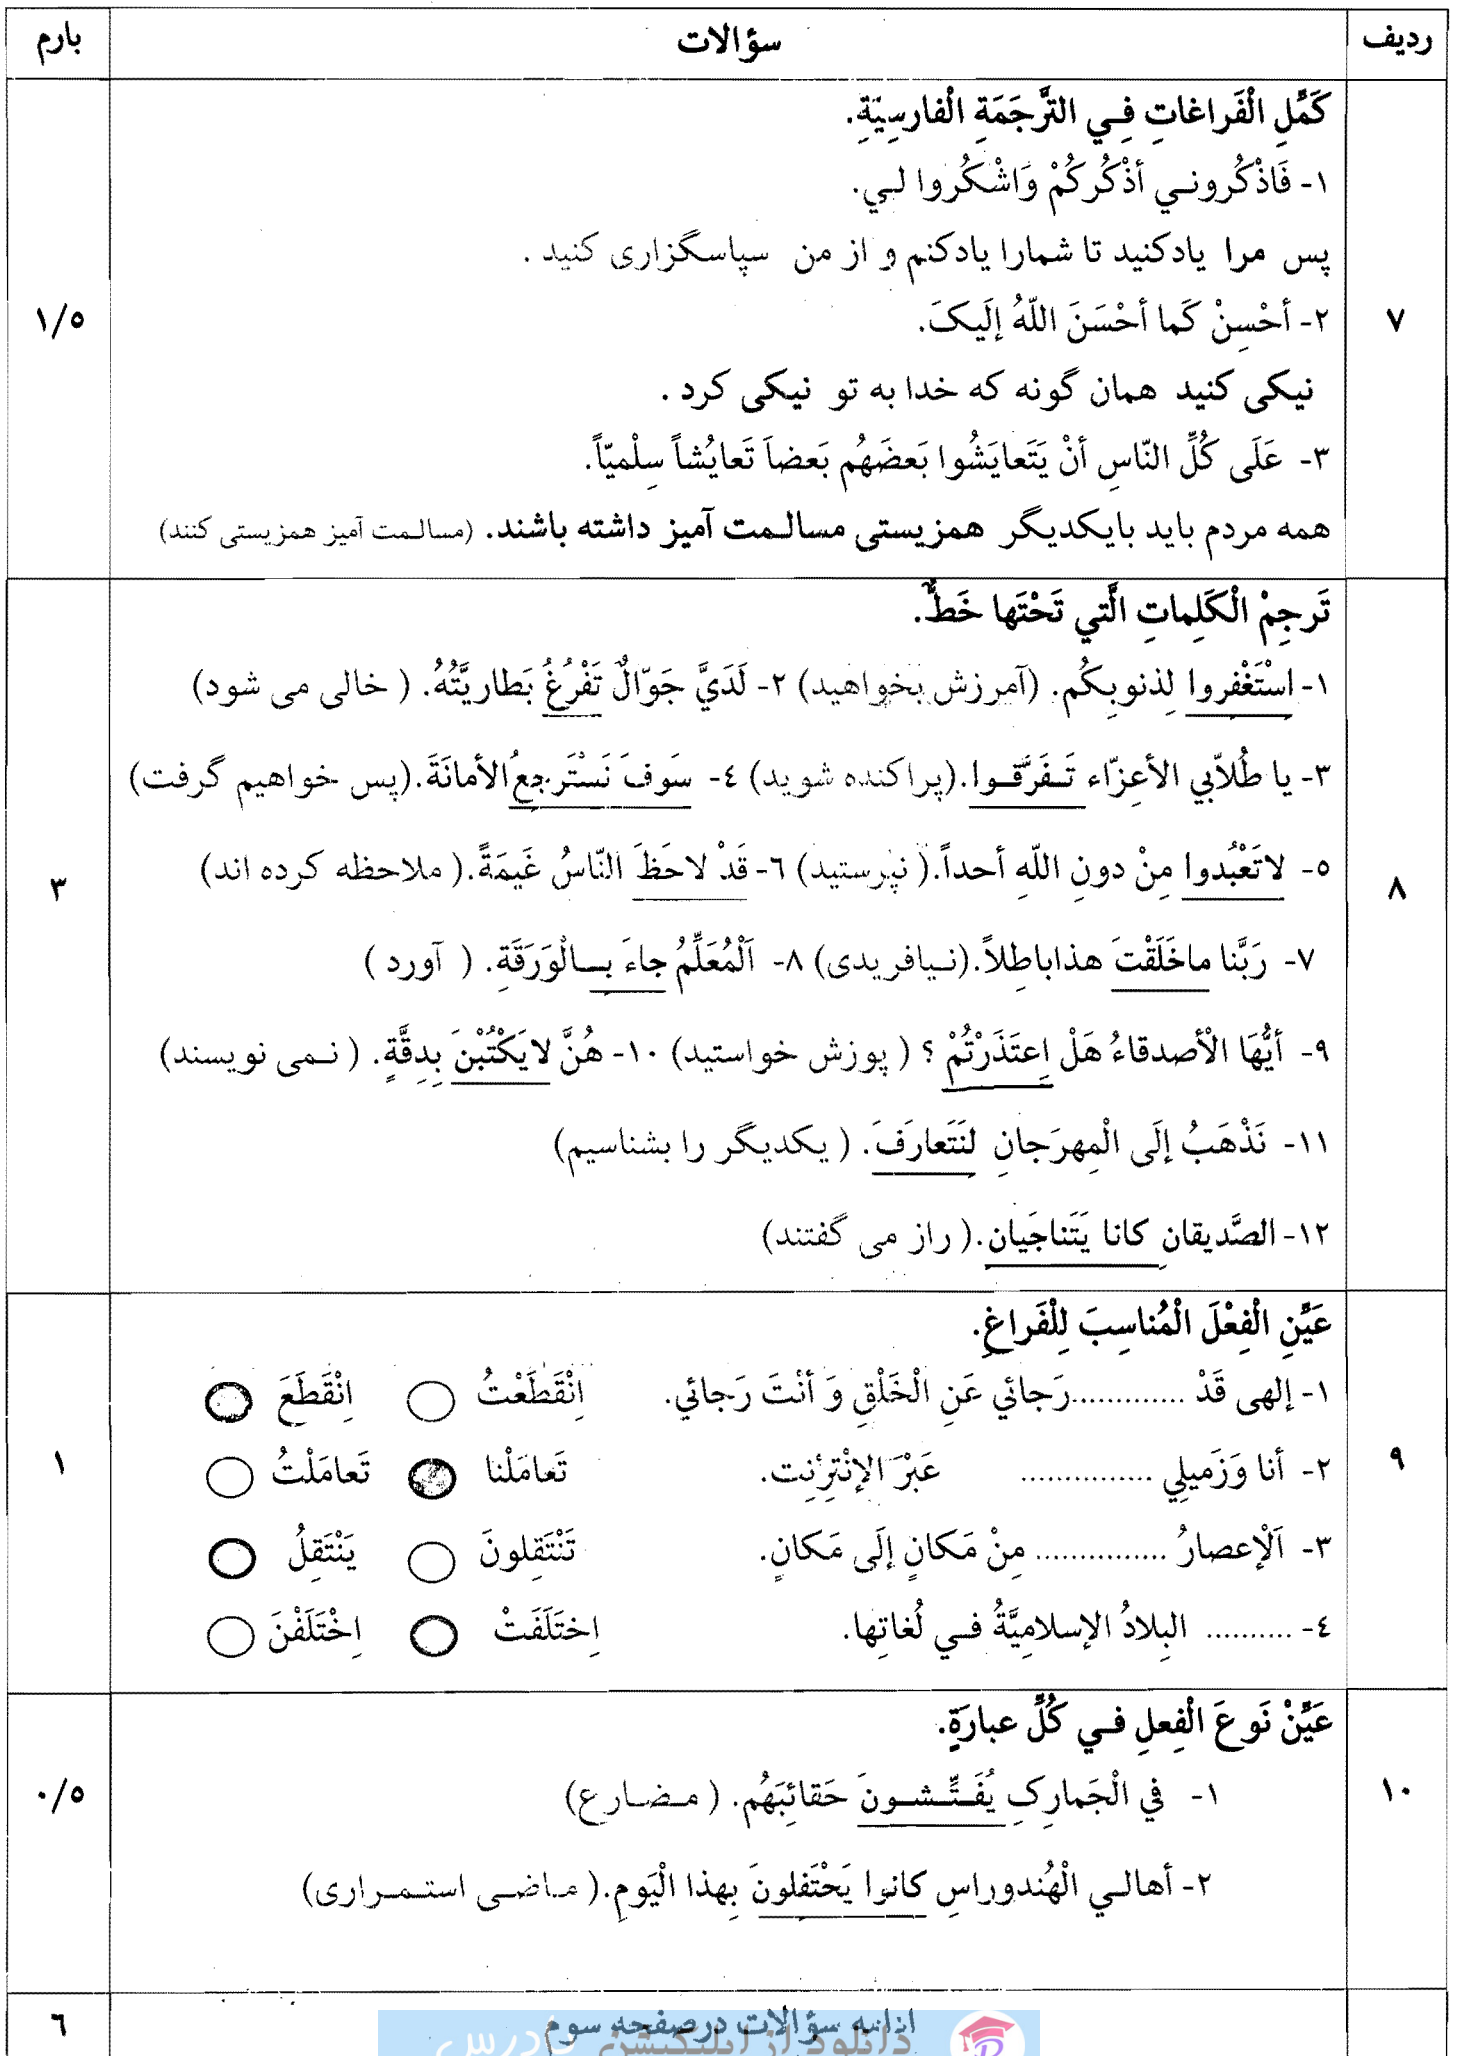 ردیف سؤالات بارم
كَمِّلِ الْفَراغاتِ فِـي التَّرجَمَةِ الْفارسِيّةِ.
١- فَاذْكُرونـي أذْكُركُمْ وَاشْكُروا لـي.
پس مرا یادکنید تا شمارا یادکنم و از من سپاسگزاری کنید .
٧ ١/٥
٢- أحْسِنْ كَما أحْسَنَ اللّهُ إلَیکَ.
نیکی کنید همان گونه که خدا به تو نیکی کرد .
٣- عَلَى كُلِّ النّاسِ أنْ يَتَعايَشُوا بَعضَهُم بَعضاً تَعايُشاً سِلْميّاً.
همه مردم باید بایکدیگر همزیستی مسالـمت آمیز داشته باشند. (مسالـمت آمیز همزیستی کنند)
تَرجِمْ الْكَلِماتِ الَّتي تَحْتَها خَطٌّ.
١- اسْتَغْفِروا لِذنوبِكُم. (آمرزش بخواهید) ٢- لَدَيَّ جَوّالٌ تَفْرُغُ بَطاريَّتُهُ. ( خالی می شود)
٣- يا طُلاّبي الأعِزّاء تَـفَرَّقـوا.(پراکنده شوید) ٤- سَوفَ نَسْتَرجِعُ الأمانَةَ.(پس خواهیم گرفت)
٨ ٣
٥- لاتَعْبُدوا مِنْ دونِ اللّهِ أحداً.( نپرستید) ٦- قَدْ لاحَظَ النّاسُ غَيمَةً.( ملاحظه کرده اند)
٧- رَبَّنا ماخَلَقْتَ هذاباطِلاً.(نـیافریدی) ٨- اَلْمُعَلِّمُ جاءَ بـالْوَرَقَةِ. ( آورد )
٩- أيُّهَا الْأصدقاءُ هَلْ اِعتَذَرْتُمْ ؟ ( پوزش خواستید) ١٠- هُنَّ لايَكْتُبْنَ بِدِقَّةٍ. ( نـمی نویسند)
١١- نَذْهَبُ إلَى الْمِهرَجانِ لنَتَعارَفَ. ( یکدیگر را بشناسیم)
١٢- الصَّديقانِ كانا يَتَناجَيانِ.( راز می گفتند)
عَيِّنِ الْفِعْلَ الْمُناسِبَ لِلْفَراغِ.
١- إلهى قَدْ .............رَجائي عَنِ الْخَلْقِ وَ أنْتَ رَجائي. اِنْقَطَعْتُ اِنْقَطَعَ
٩ ١
٢- أنا وَزَميلِي ............... عَبْرَ الإنْتِرْنِت. تَعامَلْنا تَعامَلْتُ
٣- اَلْإعصارُ ............... مِنْ مَكانٍ إلَى مَكانٍ. تَنْتَقِلونَ يَنْتَقِلُ
٤- .......... البِلادُ الإسلامِيَّةُ فـي لُغاتِها. اِختَلَفَتْ اِخْتَلَفْنَ
عَيِّنْ نَوعَ الْفِعلِ فـي كُلِّ عبارَةٍ.
١- في الْجَمارِكِ يُفَـتِّـشـونَ حَقائِبَهُم. ( مـضـارع)
١٠ ٠/٥
٢- أهالـي الْهُندوراسِ كانوا يَحْتَفِلونَ بِهذا الْيَومِ.( مـاضـی استـمـراری)
ادامه سؤالات درصفحه سوم ٦
دانلود از اپلیکیشن پادرس